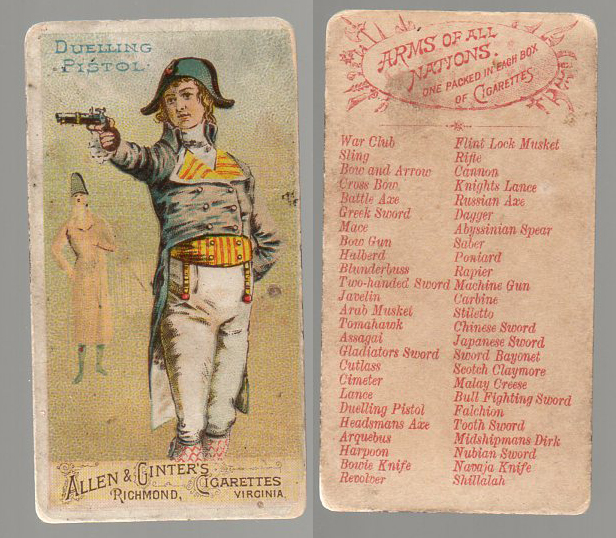 DUELLING
PISTOL.
ALLEN & GINTER'S CIGARETTES
RICHMOND, VIRGINIA
ARMS OF ALL
NATIONS.
ONE PACKED IN EACH BOX
OF CIGARETTES
War Club
Sling
Bow and Arrow
Cross Bow
Battle Axe
Greek Sword
Mace
Bow Gun
Halberd
Blunderbuss
Two-handed Sword
Javelin
Arab Musket
Tomahawk
Assagai
Gladiators Sword
Cutlass
Cimeter
Lance
Duelling Pistol
Headsmans Axe
Arquebus
Harpoon
Bowie Knife
Revolver
Flint Lock Musket
Rifle
Cannon
Knights Lance
Russian Axe
Dagger
Abyssinian Spear
Saber
Poniard
Rapier
Machine Gun
Carbine
Stiletto
Chinese Sword
Japanese Sword
Sword Bayonet
Scotch Claymore
Malay Creese
Bull Fighting Sword
Falchion
Tooth Sword
Midshipmans Dirk
Nubian Sword
Navaja Knife
Shillalah